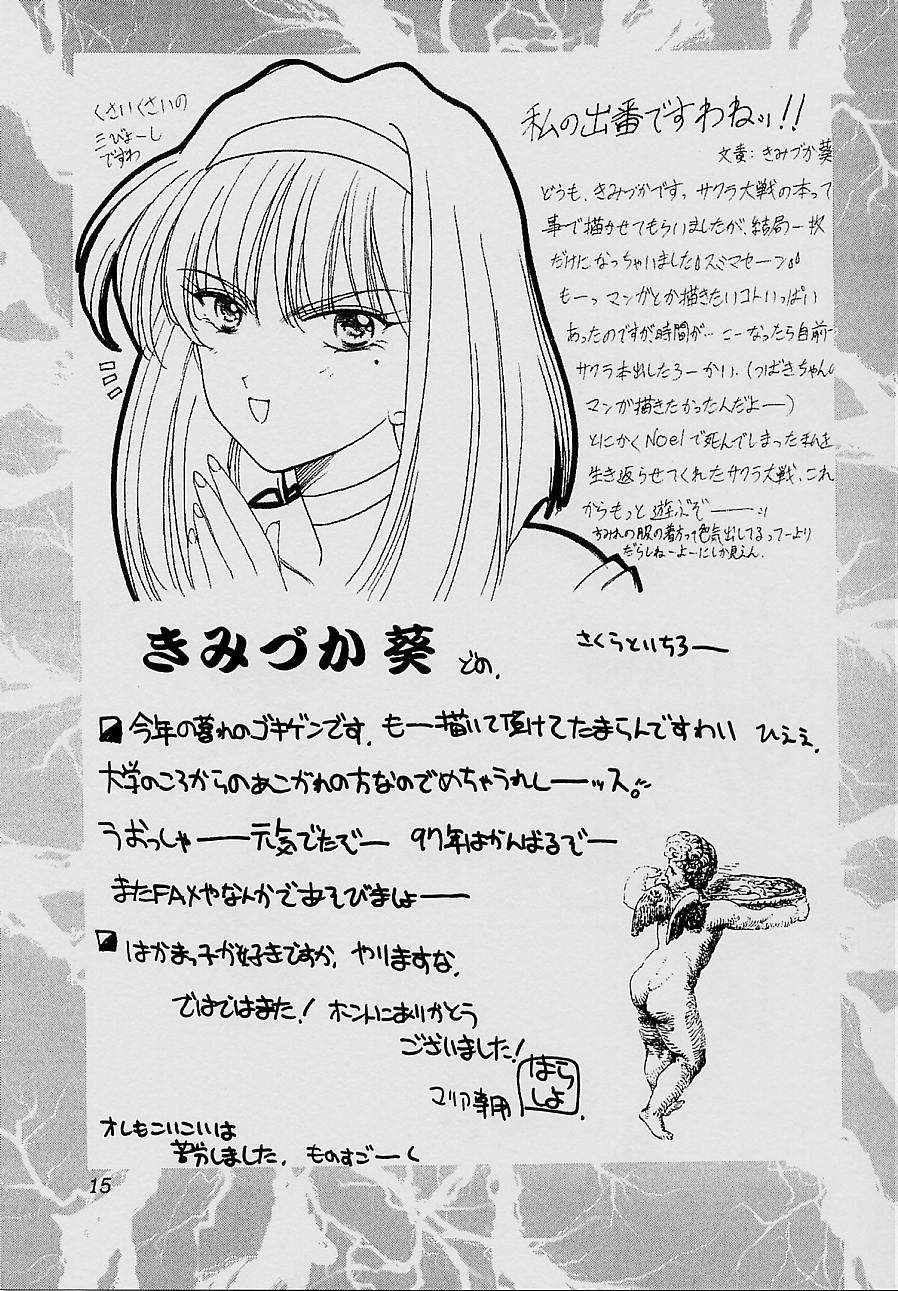 くさいくさいの
三びょーし
ですわ
私の出番ですわねッ!!
文責:きみづか葵
どうも、きみづかです。サクラ大戦の本って
事で描かせてもらいましたが、結局一枚
だけになっちゃいました。スミマセーン。
もーっマンガとか描きたいコトいっぱい
あったのですが時間が…こーなったら自前で
サクラ本出したろーかい。(つばきちゃんの
マンガ描きたかったんだよー)
とにかくNoelで死んでしまった私を
生き返らせてくれたサクラ大戦、これ
からもっと遊ぶぞーーッ!
すみれの服の着方って色気出してるってーより
だらしねーよーにしか見えん.
きみづか葵 どの.
さくらといちろー
今年の暮れのゴキゲンです. もー描いて頂けてたまらんですわい ひぇぇ.
大学のころからのあこがれの方なのでめちゃうれしーーッス。
うおっしゃーー元気でたぞー 97年はがんばるぞー
またFAXやなんかであそびましょーー
はかまっ子が好きですか. やりますな.
ではではまた! ホントにありがとう
ございました!
マリア専用 はらしょ.
オレもこいこいは
苦労しました. ものすごーく
15